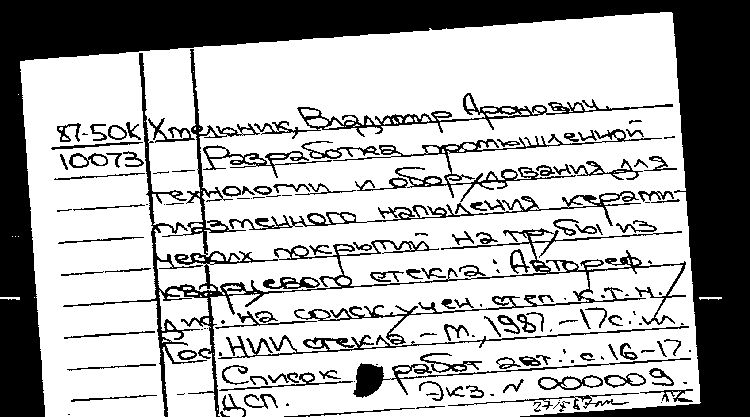 87-50K Хмельник, Владимир Аронович.
10073 Разработка промышленной
технологии и оборудования для
плазменного напыления керами-
ческих покрытий на трубы из
кварцевого стекла: Автореф.
дис. на соиск. учен. степ. к.т.н./
Гос. НИИ стекла. - М., 1987. - 17с.: ил.
Список работ авт.: с. 16-17.
ДСП. Экз. N 000009.